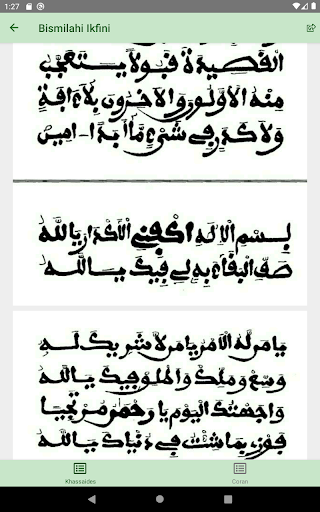 1:27
Bismilahi Ikfini
القصيدة قبولا يستعجب
منه الأولون والآخرون بلا آفة
ولا كدر في شيء ما أبدا - آمين
بسم الإله اكفني الأكدار يا الله
صف البقاء به لي فيك يا الله
يا من له الأمر يا من لا شريك له
يا الله
واجهتك اليوم يا رحمن مرتجيا
بما شئت في دنياك يا الله
Khassaides
Coran